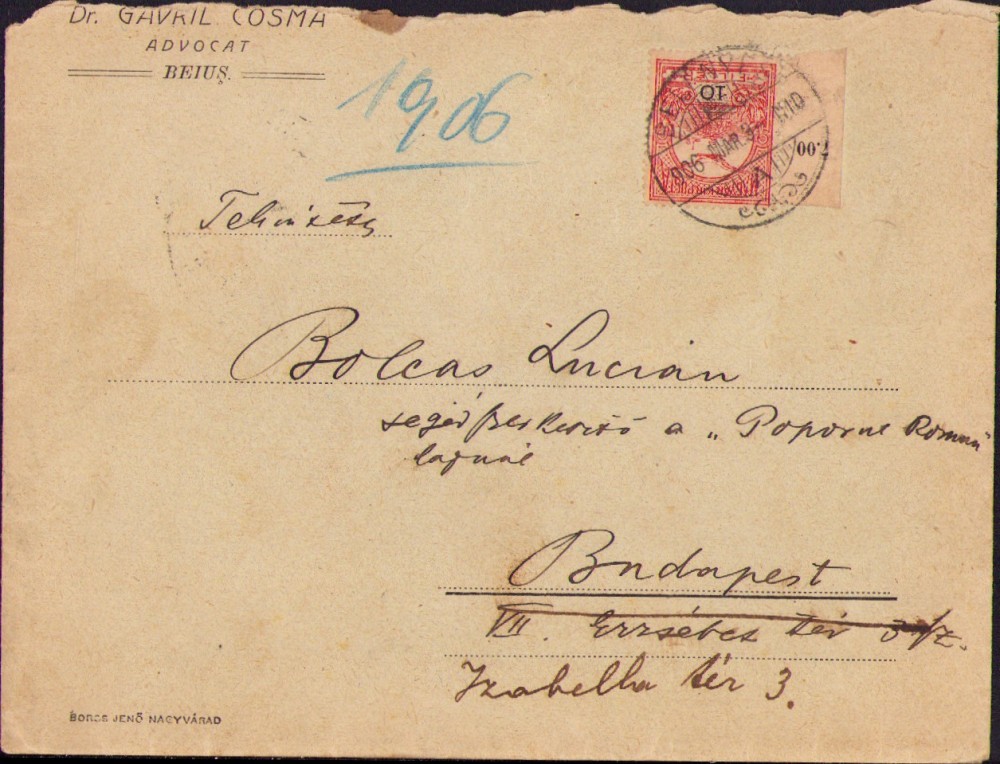 Dr. GAVRIL COSMA
ADVOCAT
BEIUȘ.
1906
10
906 MAR
A
.00
Bolcas Lucián
segédszerkesztő a „Poporul Roman"
lapnál
Budapest
VII. Erzsébet tér
Izabella tér 3.
BOROS JENŐ NAGYVÁRAD